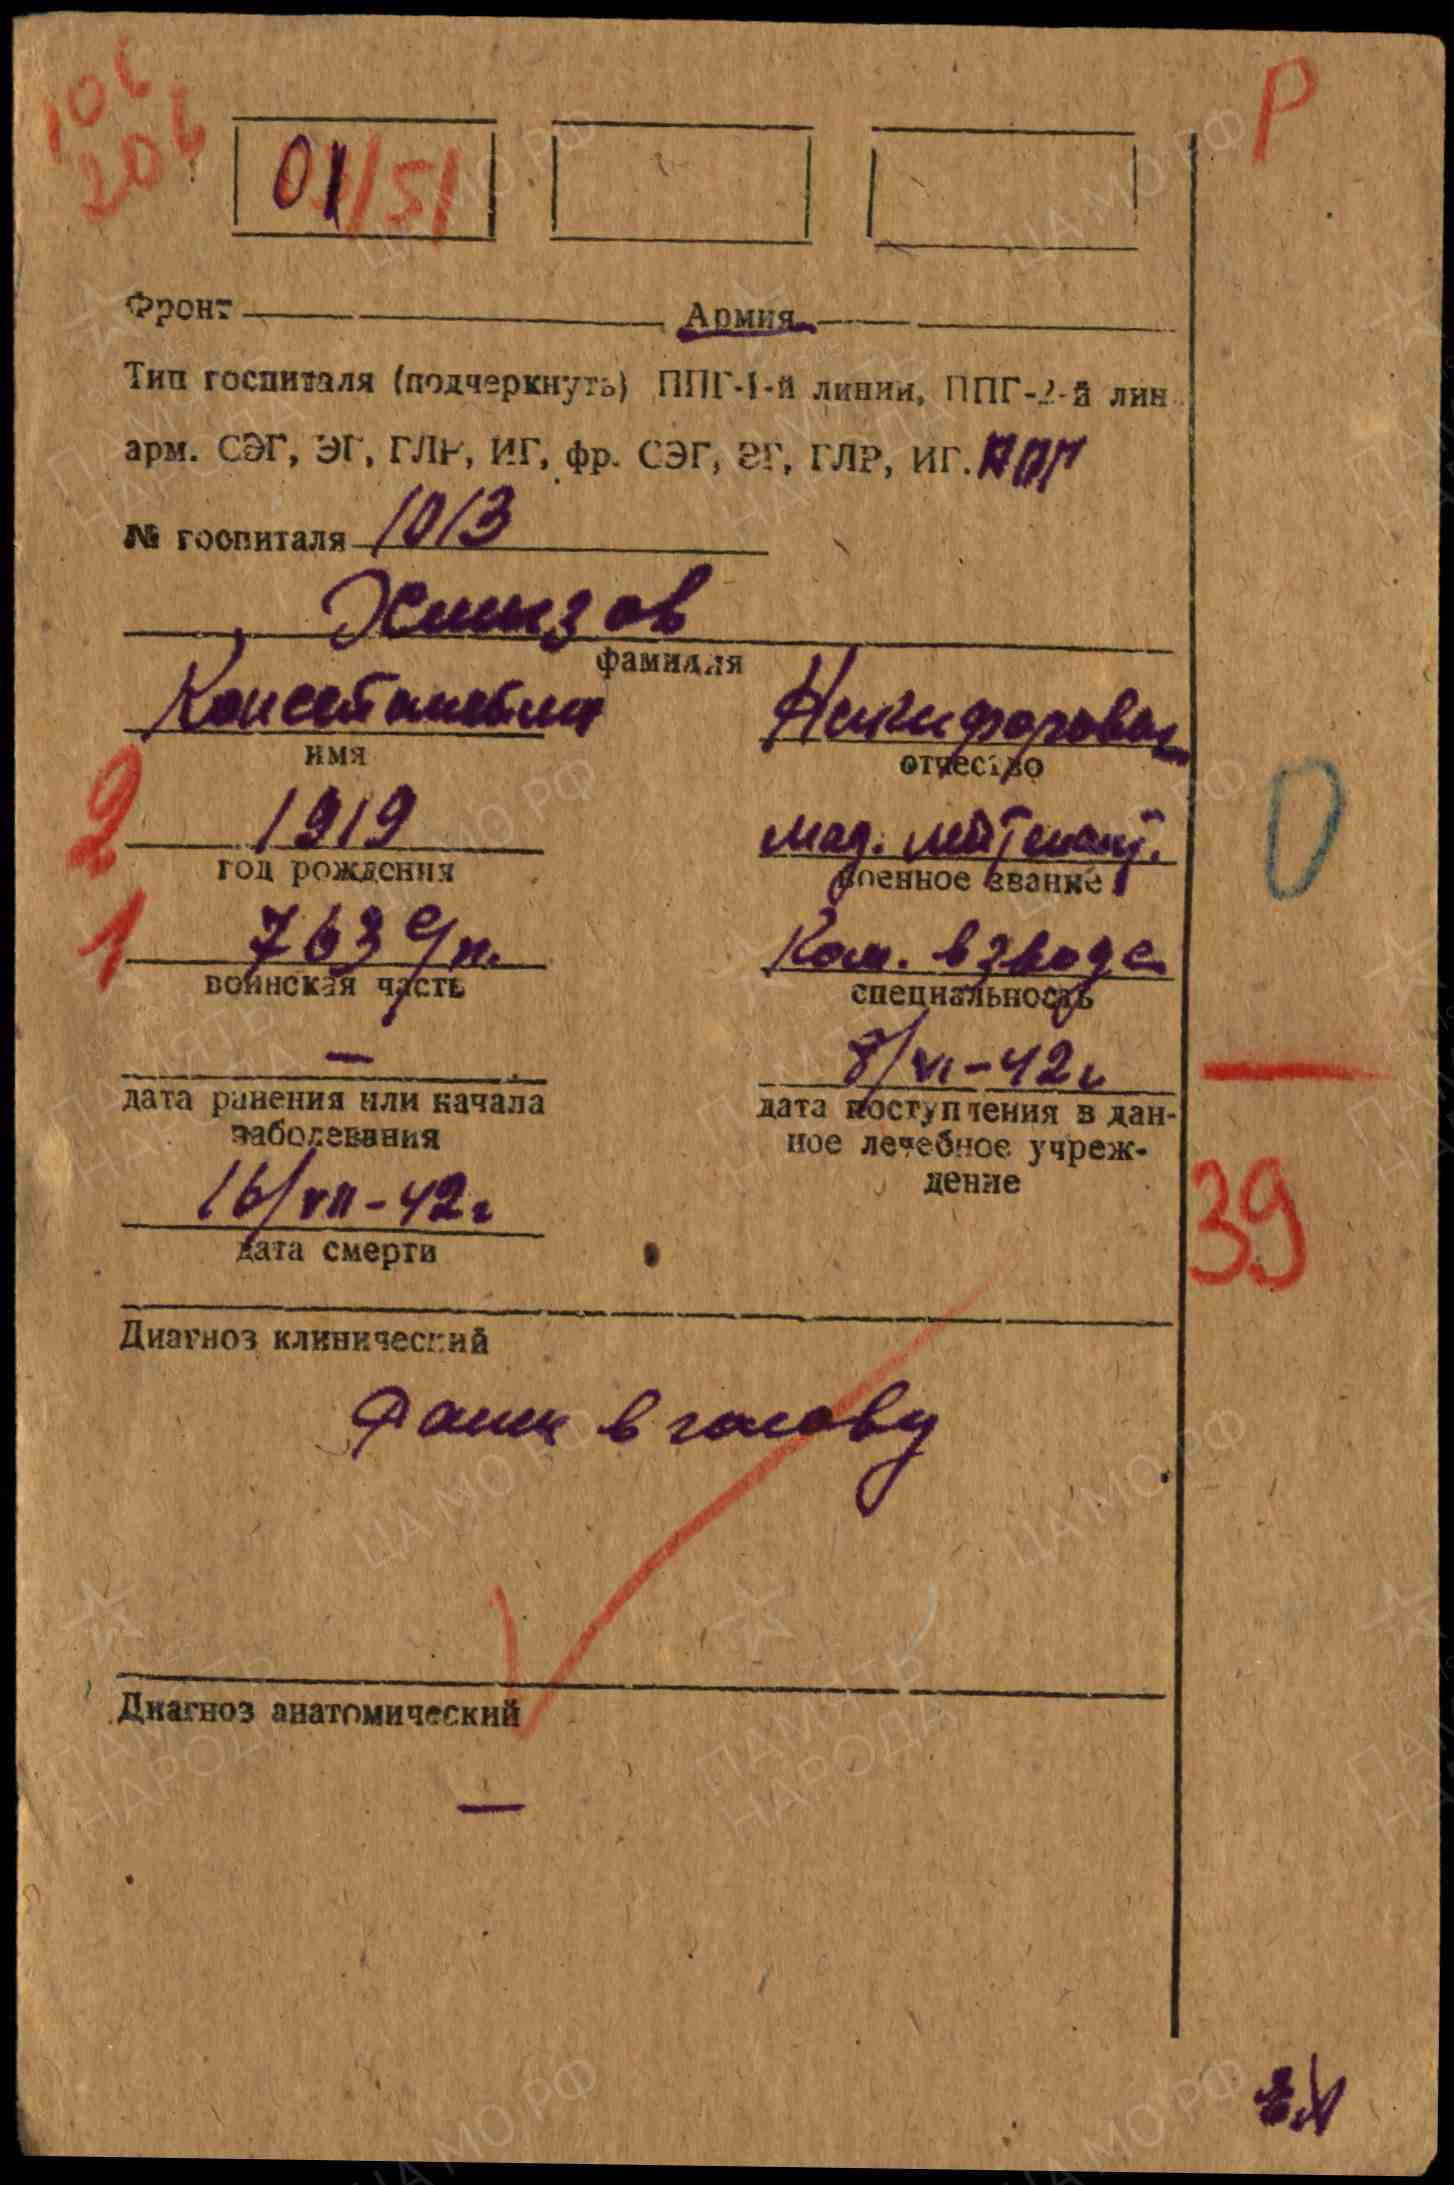 10 6
20 6
Р
01/51
Фронт Армия
Тип госпиталя (подчеркнуть) ППГ-1-й линии, ППГ-2-й лин
арм. СЭГ, ЭГ, ГЛР, ИГ, фр. СЭГ, ЭГ, ГЛР, ИГ. ППГ
№ госпиталя 1013
фамилия
Константин Никифорович
имя отчество
2 1919 мад. лейтенант. 0
год рождения военное звание
1 763 с/п. Ком. взвода
воинская часть специальность
— 8/VI-42г
дата ранения или начала заболевания
дата поступления в данное лечебное учреждение
16/VII-42г 39
дата смерти
Диагноз клинический
в голову
Диагноз анатомический
—
ЦА МО РФ
ПАМЯТЬ НАРОДА